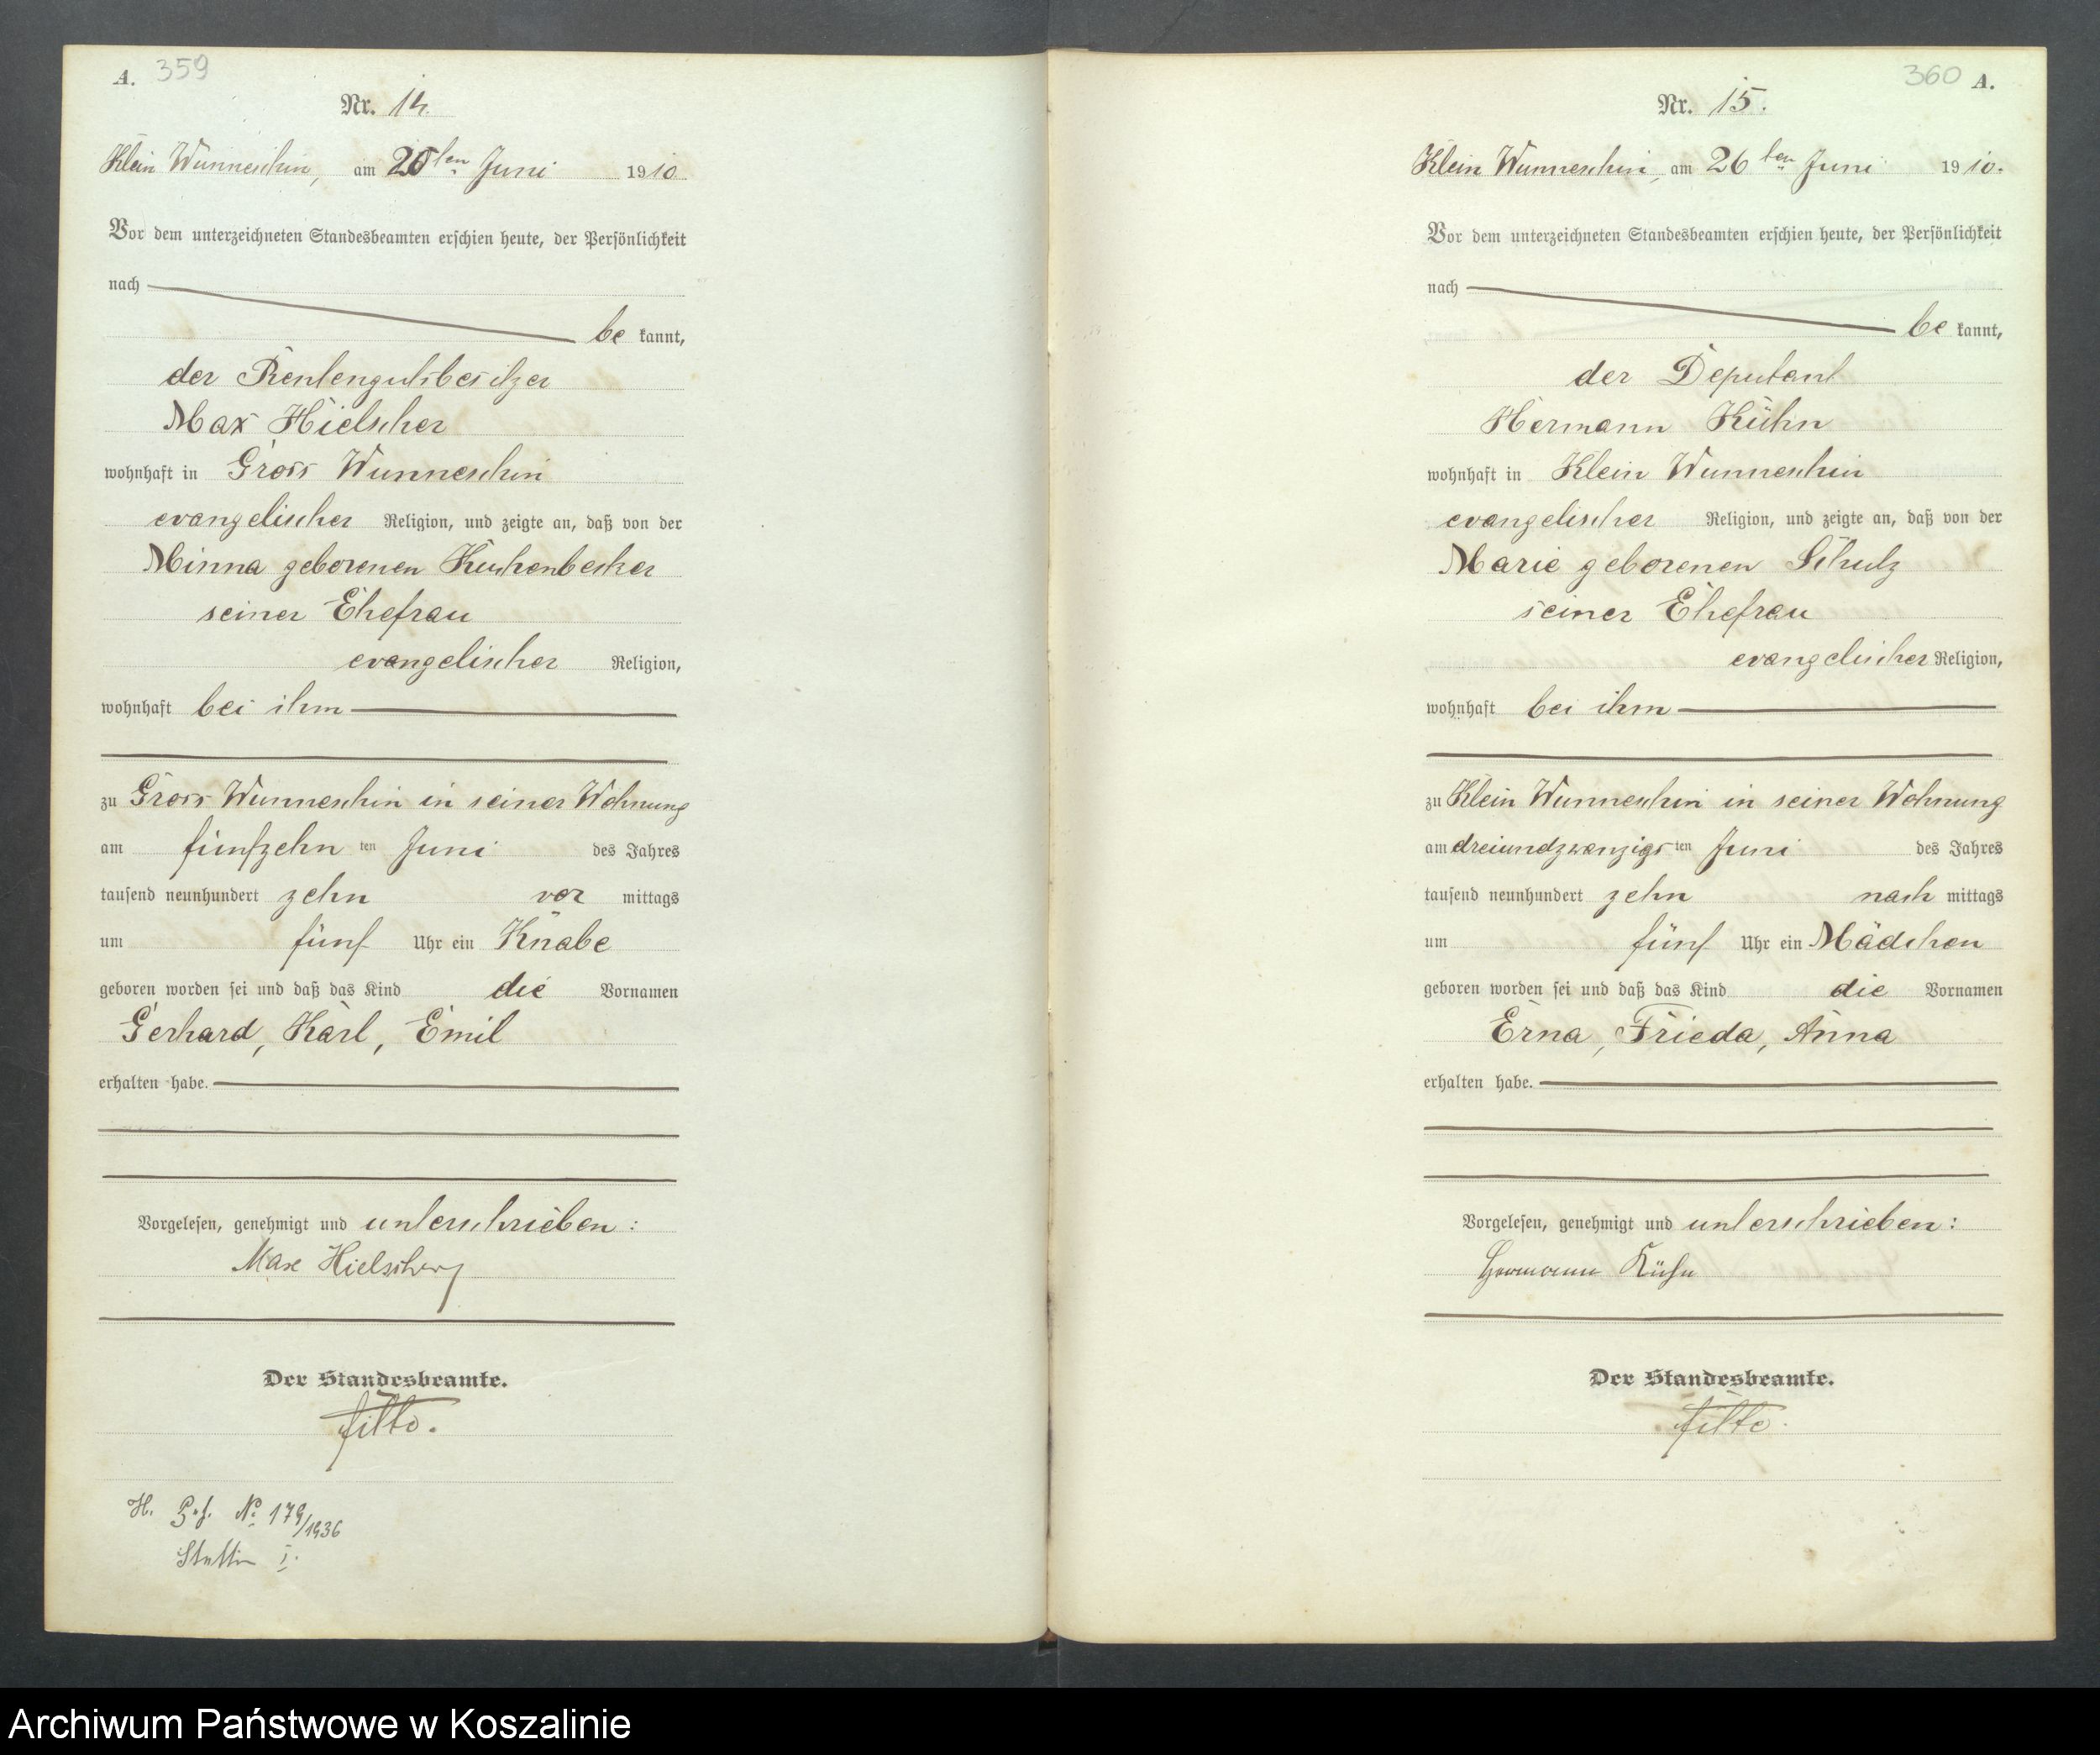 A. 359
Nr. 14.
Klein Wunneschin, am ten Juni 1910
Vor dem unterzeichneten Standesbeamten erschien heute, der Persönlichkeit
nach
be kannt,
der Rentengutsbesitzer
Max Hielscher
wohnhaft in Gross Wunneschin
evangelischer Religion, und zeigte an, daß von der
Minna geborenen Kuchenbecker
seiner Ehefrau
evangelischer Religion,
wohnhaft bei ihm
zu Gross Wunneschin in seiner Wohnung
am fünfzehn ten Juni des Jahres
tausend neunhundert zehn vor mittags
um fünf Uhr ein Knabe
geboren worden sei und daß das Kind die Vornamen
Gerhard, Karl, Emil
erhalten habe.
Vorgelesen, genehmigt und unterschrieben:
Max Hielscher
Der Standesbeamte.
H. Nº 179/1936
Stettin I.
360 A.
Nr. 15.
Klein Wunneschin, am 26 ten Juni 1910.
Vor dem unterzeichneten Standesbeamten erschien heute, der Persönlichkeit
nach
be kannt,
der Deputant
Hermann Kühn
wohnhaft in Klein Wunneschin
evangelischer Religion, und zeigte an, daß von der
Marie geborenen Schulz
seiner Ehefrau
evangelischer Religion,
wohnhaft bei ihm
zu Klein Wunneschin in seiner Wohnung
am dreiundzwanzigs ten Juni des Jahres
tausend neunhundert zehn nach mittags
um fünf Uhr ein Mädchen
geboren worden sei und daß das Kind die Vornamen
Erna, Frieda, Anna
erhalten habe.
Vorgelesen, genehmigt und unterschrieben:
Hermann Kühn
Der Standesbeamte.
Archiwum Państwowe w Koszalinie